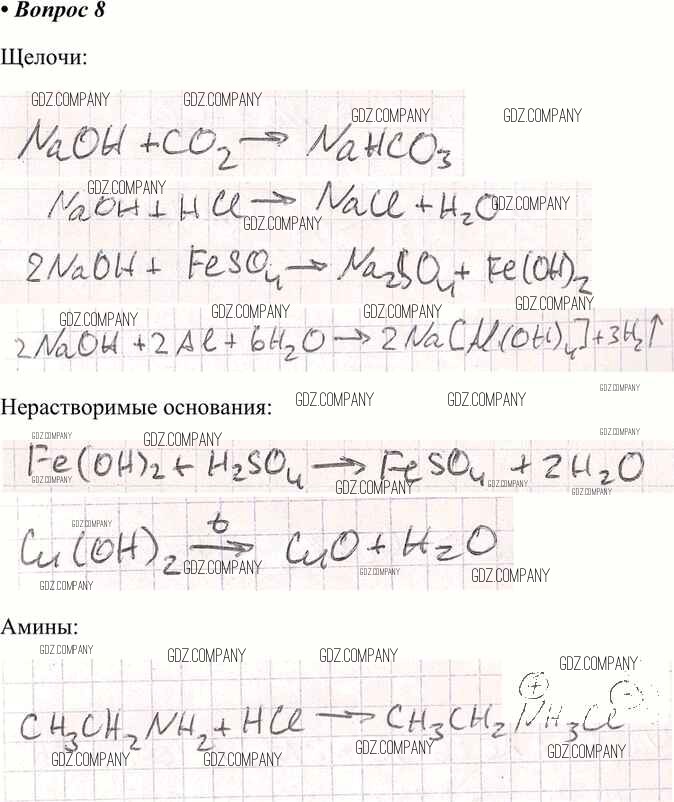 • Вопрос 8
Щелочи:
GDZ.COMPANY GDZ.COMPANY
GDZ.COMPANY GDZ.COMPANY
NaOH + CO₂ → NaHCO₃
GDZ.COMPANY GDZ.COMPANY
NaOH + HCl → NaCl + H₂O
GDZ.COMPANY
2NaOH + FeSO₄ → Na₂SO₄ + Fe(OH)₂
GDZ.COMPANY GDZ.COMPANY GDZ.COMPANY GDZ.COMPANY
2NaOH + 2Al + 6H₂O → 2Na[Al(OH)₄] + 3H₂↑
GDZ.COMPANY GDZ.COMPANY GDZ.COMPANY
Нерастворимые основания:
GDZ.COMPANY GDZ.COMPANY GDZ.COMPANY
Fe(OH)₂ + H₂SO₄ → FeSO₄ + 2H₂O
GDZ.COMPANY GDZ.COMPANY GDZ.COMPANY GDZ.COMPANY
GDZ.COMPANY
Cu(OH)₂ t→ CuO + H₂O
GDZ.COMPANY GDZ.COMPANY GDZ.COMPANY
GDZ.COMPANY
Амины:
GDZ.COMPANY GDZ.COMPANY GDZ.COMPANY GDZ.COMPANY
CH₃CH₂NH₂ + HCl → CH₃CH₂NH₃⊕Cl⊖
GDZ.COMPANY GDZ.COMPANY GDZ.COMPANY GDZ.COMPANY